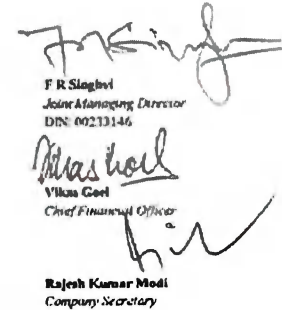 F R Singhvi
Joint Managing Director
DIN: 00233146
Vikas Goel
Chief Financial Officer
Rajesh Kumar Modi
Company Secretary